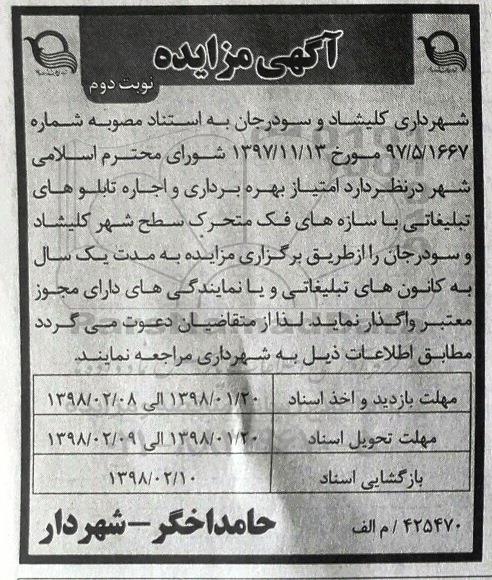 آگهی مزایده
نوبت دوم
شهرداری کلیشاد و سودرجان به استناد مصوبه شماره
۹۷/۵/۱۶۶۷ مورخ ۱۳۹۷/۱۱/۱۳ شورای محترم اسلامی
شهر درنظردارد امتیاز بهره برداری و اجاره تابلو های
تبلیغاتی با سازه های فک متحرک سطح شهر کلیشاد
و سودرجان را ازطریق برگزاری مزایده به مدت یک سال
به کانون های تبلیغاتی و یا نمایندگی های دارای مجوز
معتبر واگذار نماید. لذا از متقاضیان دعوت می گردد
مطابق اطلاعات ذیل به شهرداری مراجعه نمایند.
مهلت بازدید و اخذ اسناد ۱۳۹۸/۰۱/۲۰ الی ۱۳۹۸/۰۲/۰۸
مهلت تحویل اسناد ۱۳۹۸/۰۱/۲۰ الی ۱۳۹۸/۰۲/۰۹
بازگشایی اسناد ۱۳۹۸/۰۲/۱۰
۴۲۵۴۷۰ / م الف
حامداخگر – شهردار